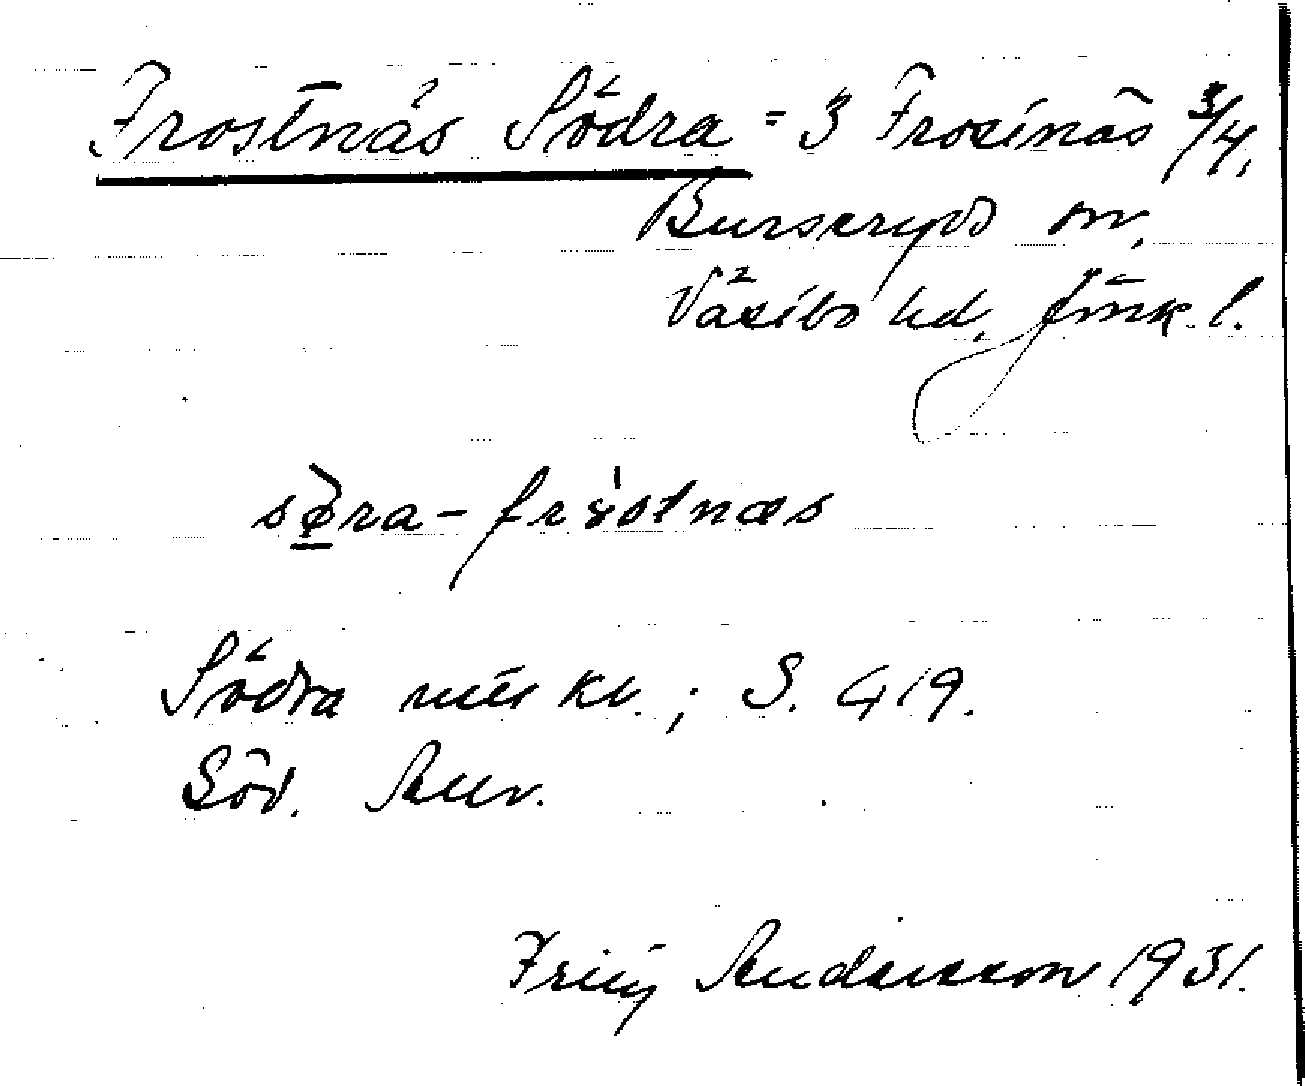 Frostnäs Södra = 3 Frostnäs 3/4,
Burseryds sn,
Västbo hd, Jönk. l.
søra-frɤ́stnæs
Södra utt. kv.; S. 419.
Söd. Anv.
Andersson 1931.